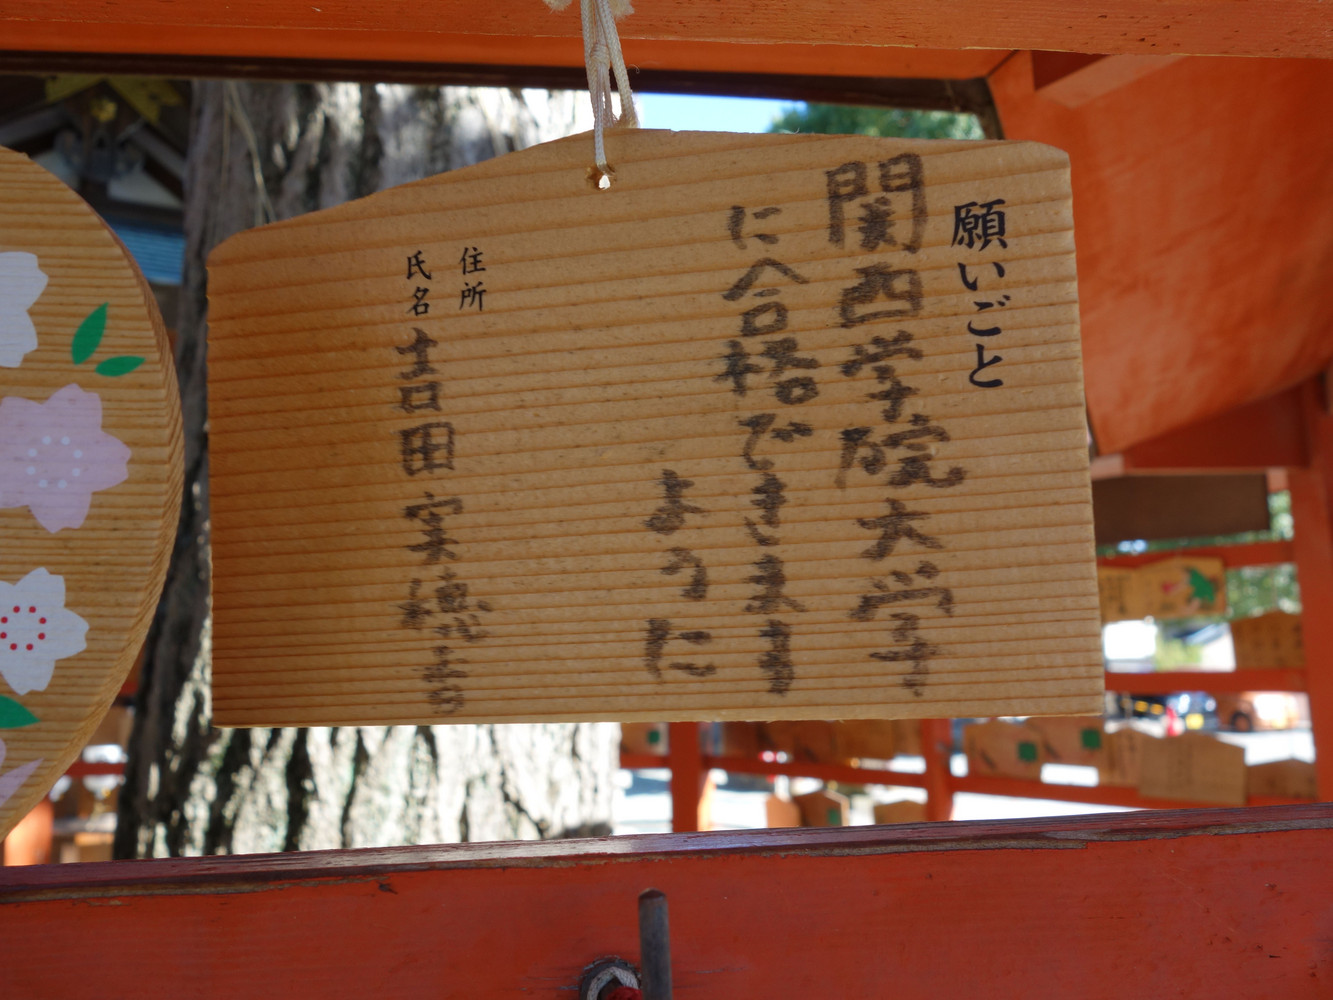 願いごと
関西学院大学
に合格できます
ように
住所
氏名 吉田実穂吉